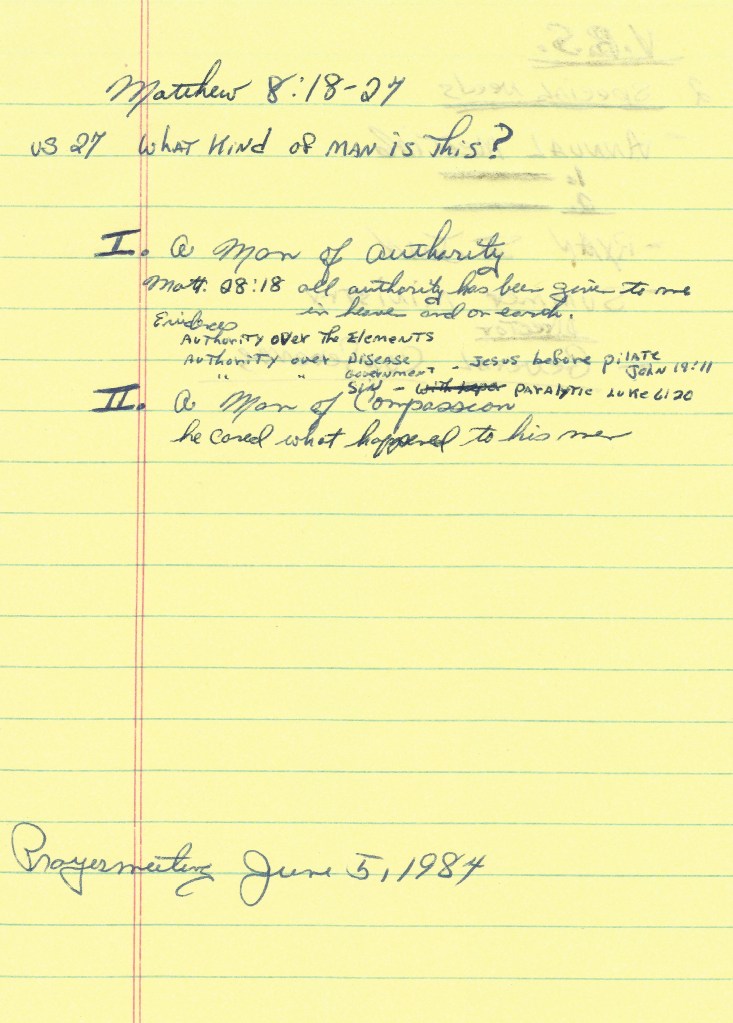 Matthew 8:18-27
vs 27 What Kind of Man is This?
I. A Man of Authority
Matt. 28:18 all authority has been given to me
in heaven and on earth.
Evidences
Authority over The Elements
Authority over Disease
" " Government - Jesus before pilate John 19:11
Sin - paralytic Luke 6:20
II. A Man of Compassion
he cared what happened to his men
Prayermeeting June 5, 1984
V.B.S.
Special needs
Annual
1.
2.
Director